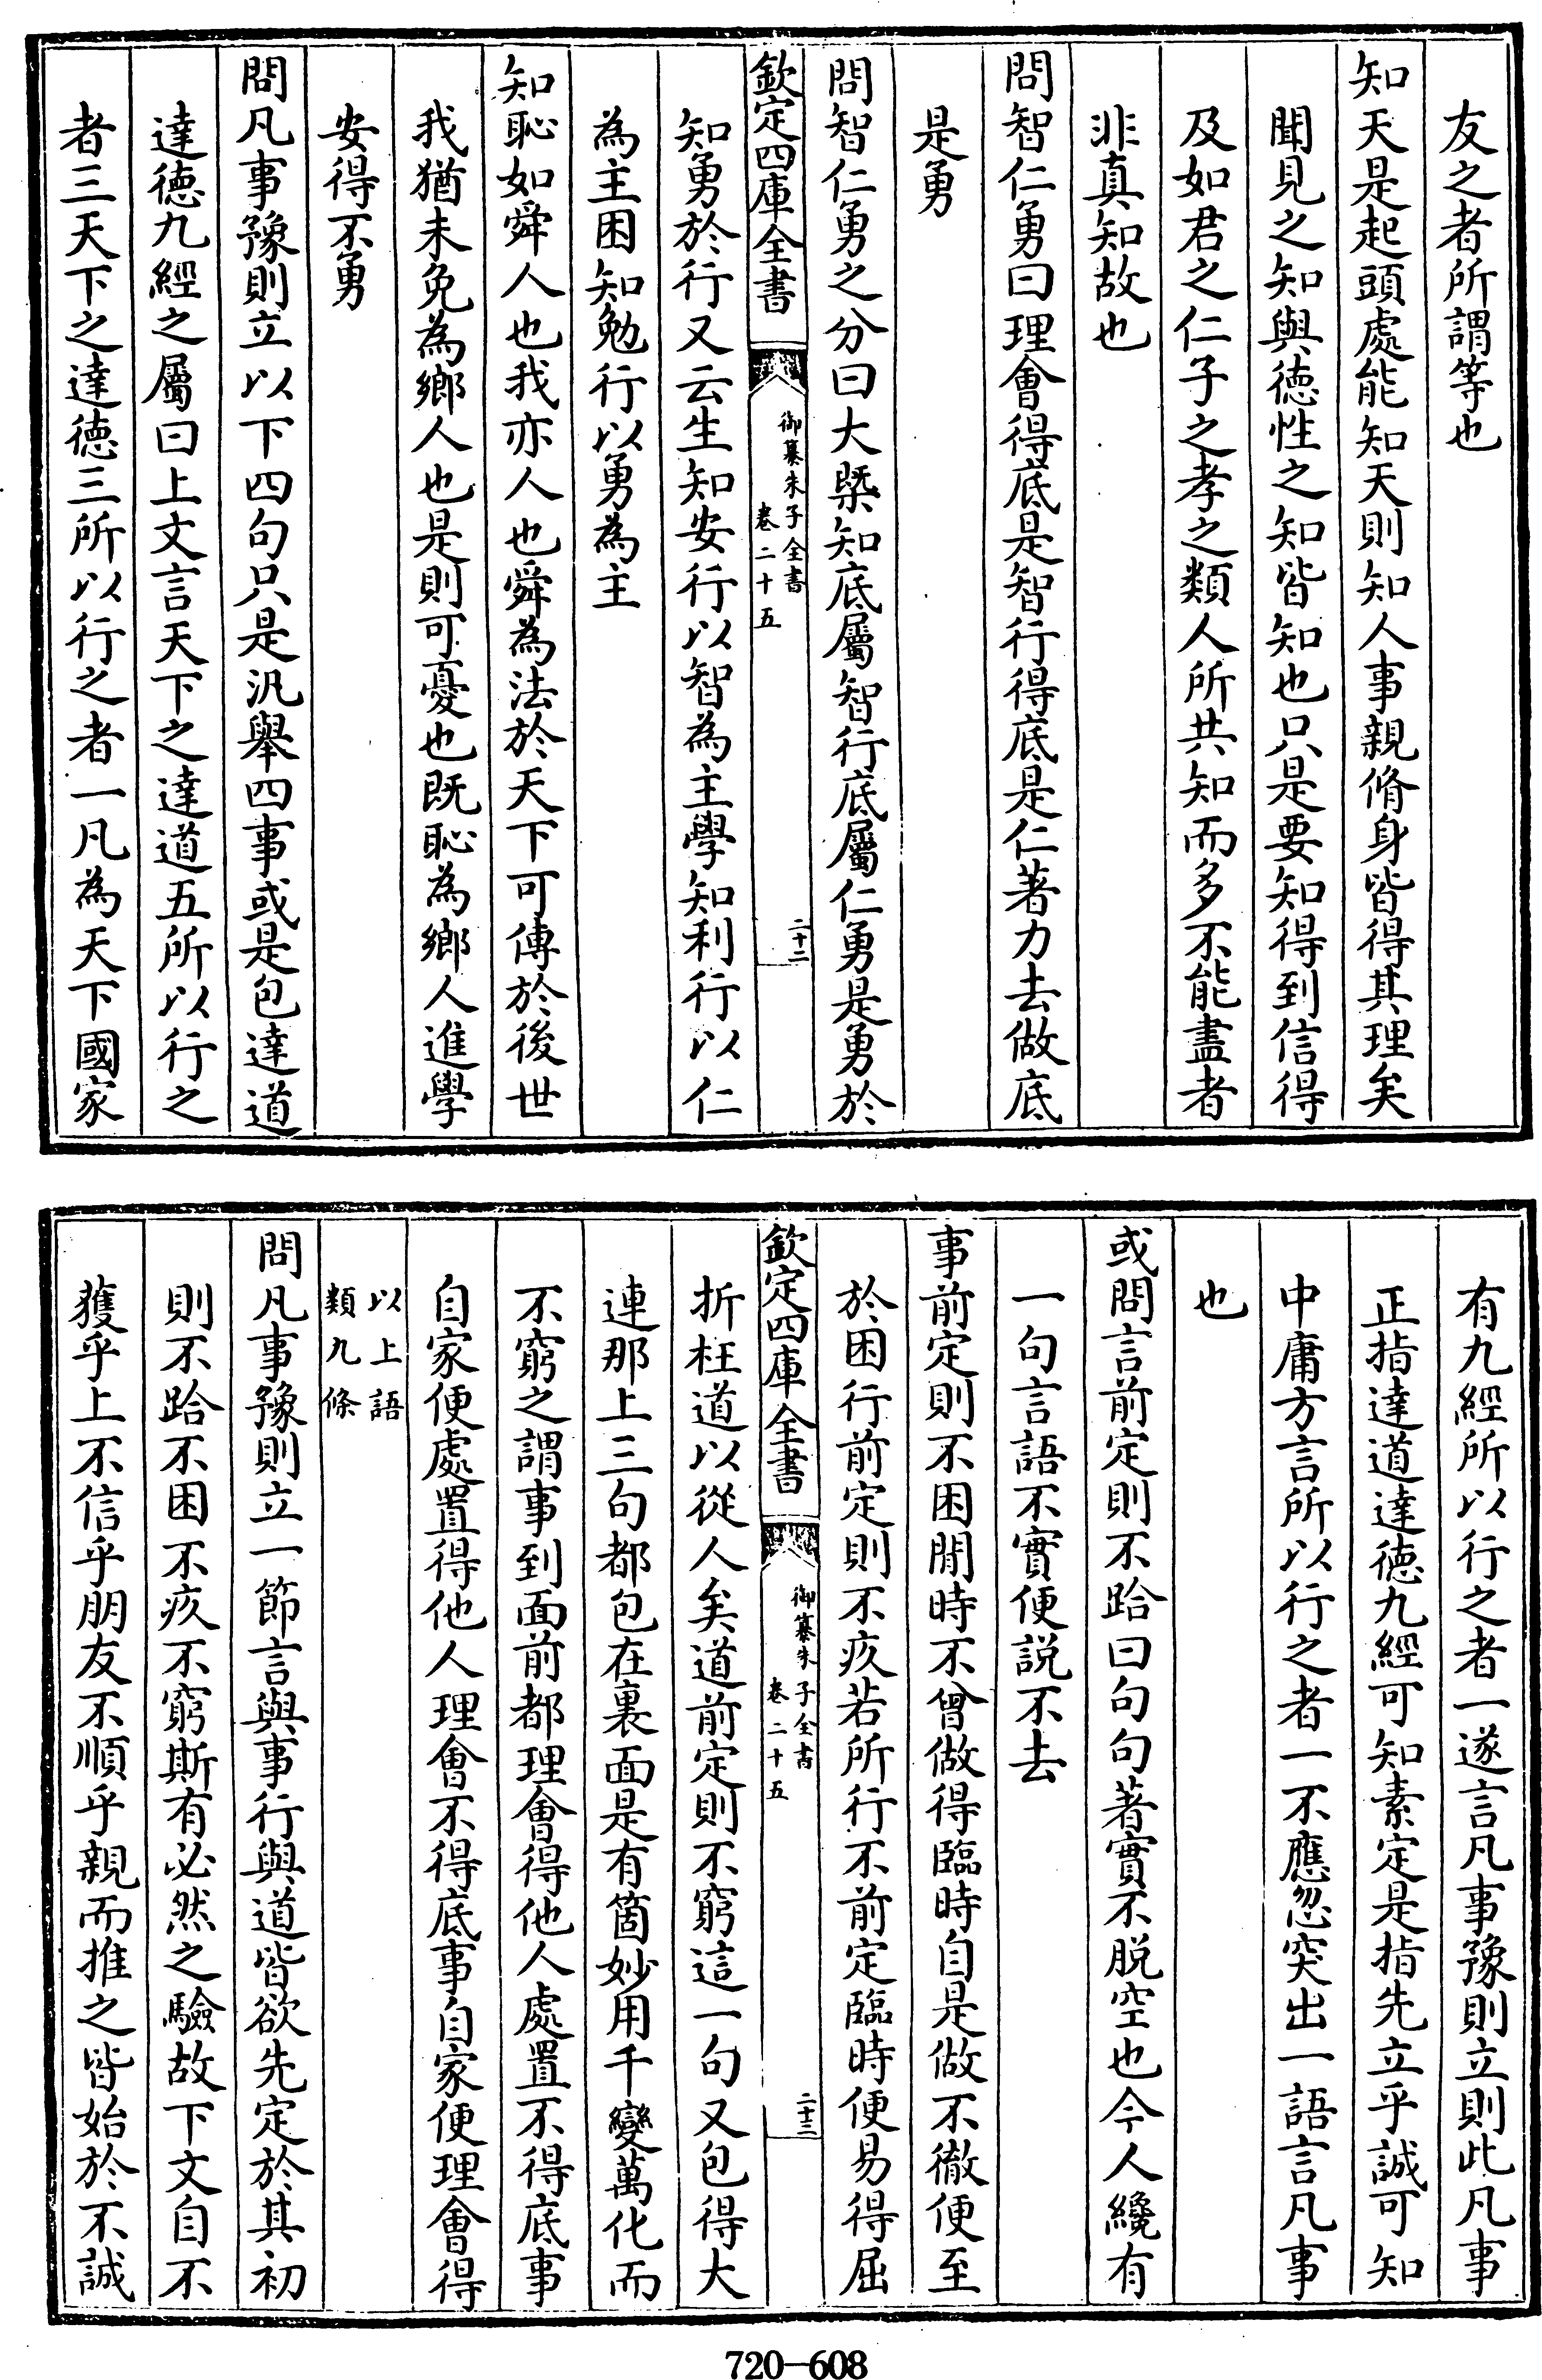 友之者所謂等也
知天是起頭處能知天則知人事親脩身皆得其理矣
聞見之知與徳性之知皆知也只是要知得到信得
及如君之仁子之孝之類人所共知而多不能盡者
非真知故也
問智仁勇曰理會得底是智行得底是仁著力去做底
是勇
問智仁勇之分曰大槩知底屬智行底屬仁勇是勇於
欽定四庫全書
御纂朱子全書
卷二十五
二十二
知勇於行又云生知安行以智為主學知利行以仁
為主困知勉行以勇為主
知恥如舜人也我亦人也舜為法於天下可傳於後世
我猶未免為鄉人也是則可憂也既恥為鄉人進學
安得不勇
問凡事豫則立以下四句只是汎舉四事或是包達道
達徳九經之屬曰上文言天下之達道五所以行之
者三天下之達徳三所以行之者一凡為天下國家
有九經所以行之者一遂言凡事豫則立則此凡事
正指達道達徳九經可知素定是指先立乎誠可知
中庸方言所以行之者一不應忽突出一語言凡事
也
或問言前定則不跲曰句句著實不脱空也今人纔有
一句言語不實便説不去
事前定則不困閒時不曾做得臨時自是做不徹便至
於困行前定則不疚若所行不前定臨時便易得屈
欽定四庫全書
御纂朱子全書
卷二十五
二十三
折枉道以從人矣道前定則不窮這一句又包得大
連那上三句都包在裏面是有箇妙用千變萬化而
不窮之謂事到面前都理會得他人處置不得底事
自家便處置得他人理會不得底事自家便理會得
以上語
類九條
問凡事豫則立一節言與事行與道皆欲先定於其初
則不跲不困不疚不窮斯有必然之驗故下文自不
獲乎上不信乎朋友不順乎親而推之皆始於不誠
720—608